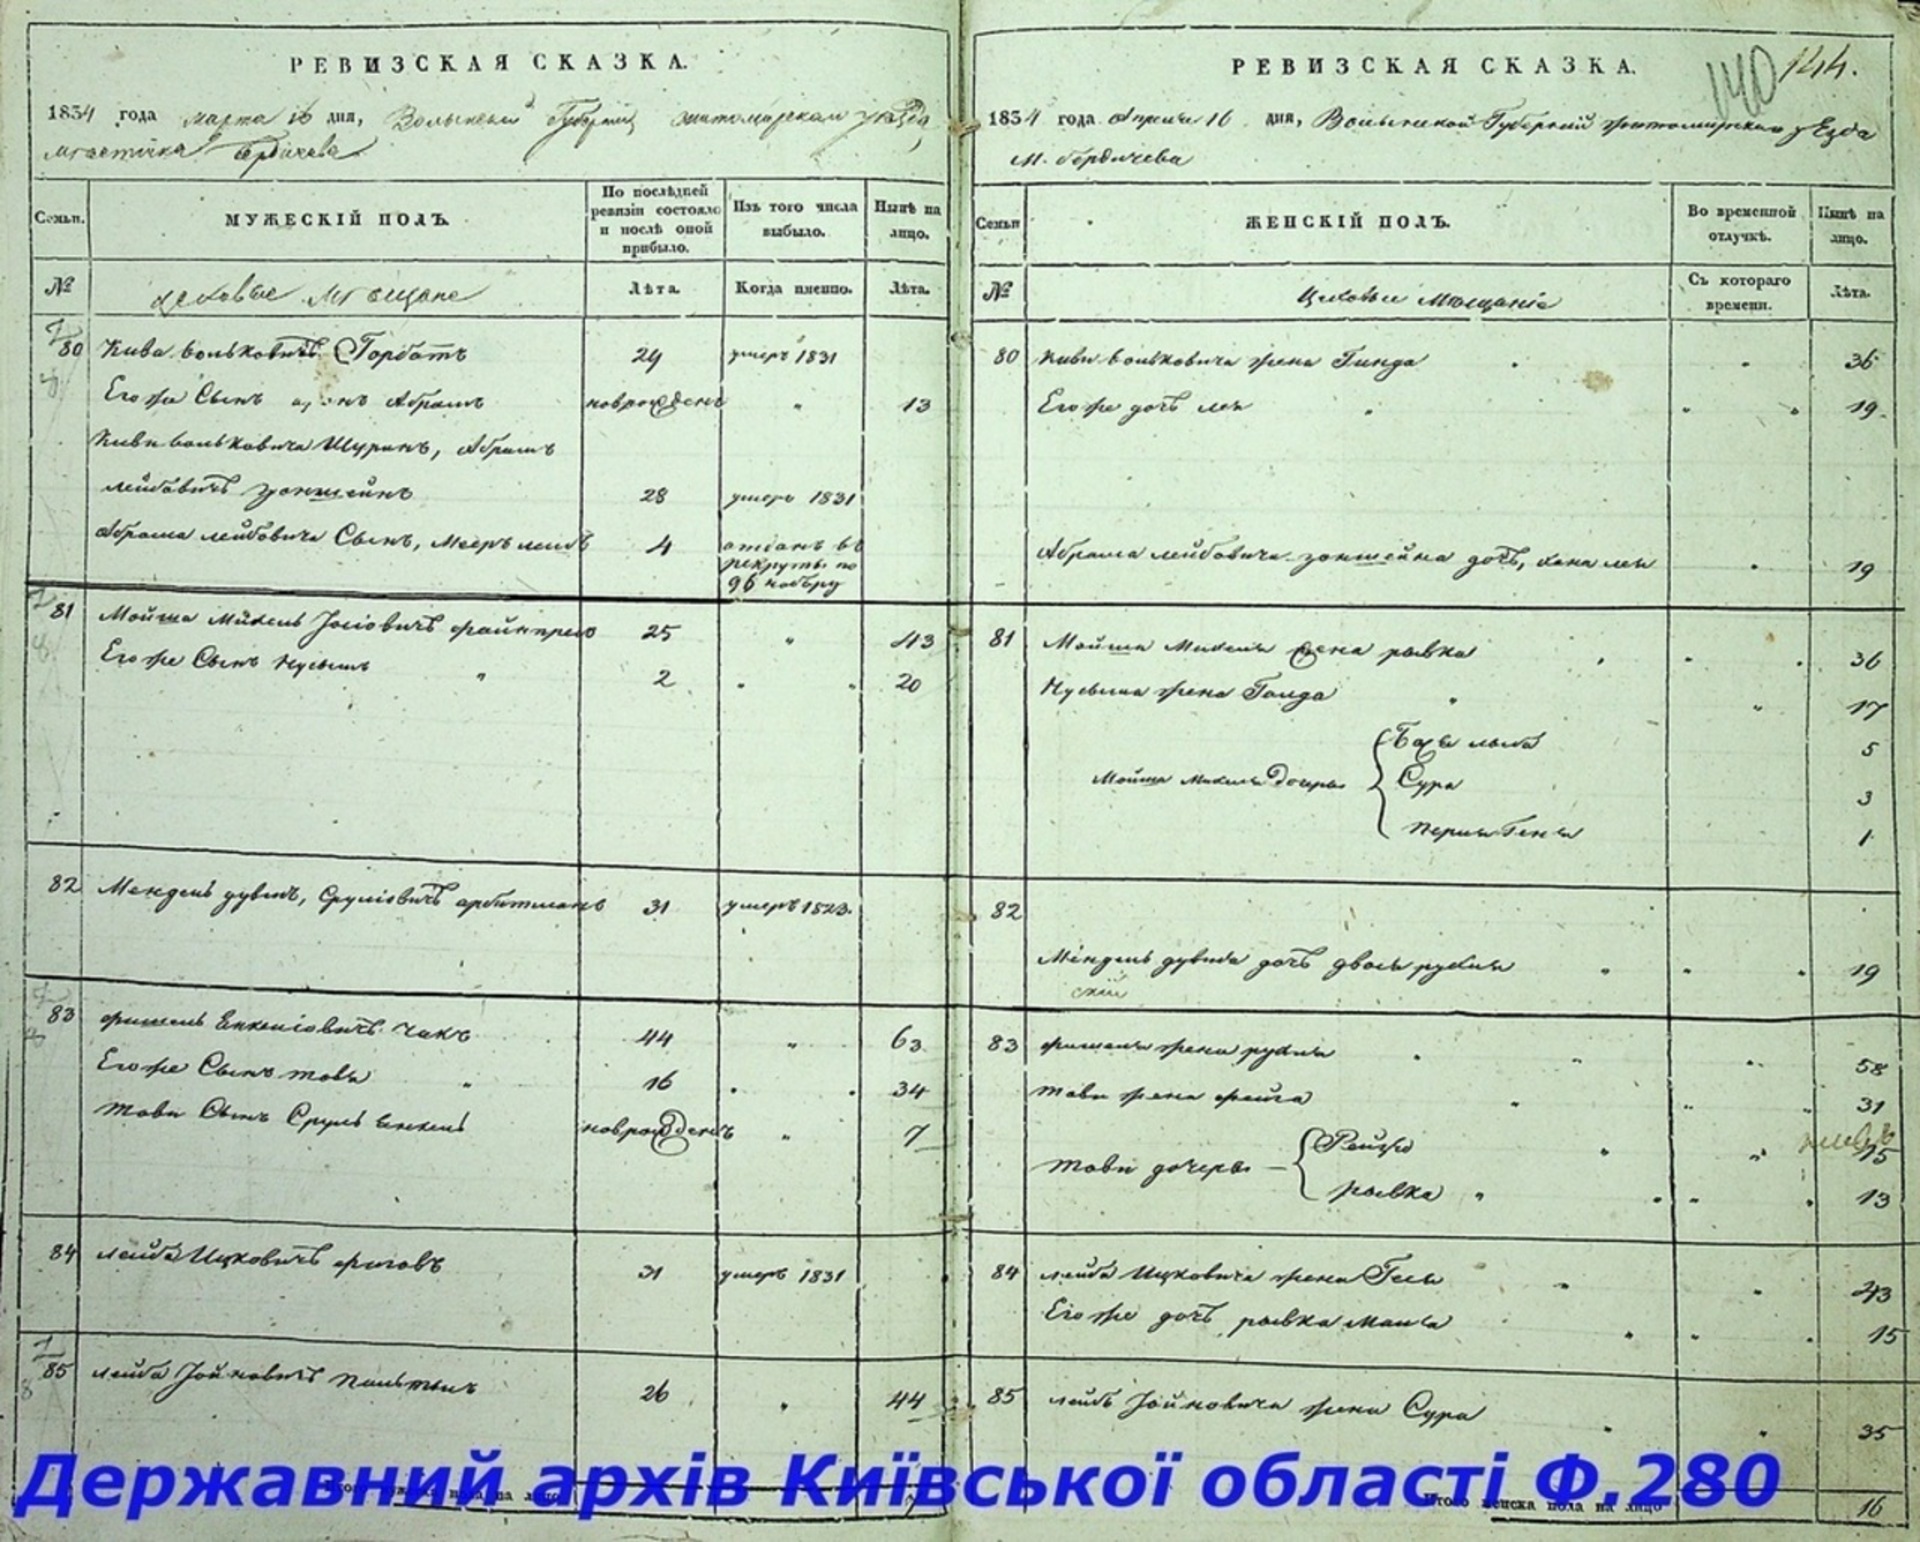 РЕВИЗСКАЯ СКАЗКА.
1834 года марта 16 дня, Волынской Губернiи житомирскаго уезда
местечка Бердичева
Семьи.
МУЖЕСКIЙ ПОЛЪ.
По послѣдней ревизiи состояло и послѣ оной прибыло.
Изъ того числа выбыло.
Нынѣ на лицо.
№
цеховые Мещане
Лѣта.
Когда именно.
Лѣта.
80 Кива вольковичъ Горбатъ 29 умеръ 1831
Его же Сынъ Абрамъ новорожденъ " 13
Киви вольковича Шуринъ, Абрамъ
лейбовичъ 28 умеръ 1831
Абрама лейбовича Сынъ, Мееръ 4 отданъ въ
рекруты по
96 набору
81 Мойша Михель Iосiовичъ 25 " 43
Его же Сынъ Нусымъ " 2 " " 20
82 Мендель дувидъ, Срулiовичъ арбитманъ 31 умеръ 1823.
83 фишель Енкелiовичъ чакъ 44 " 63
Его же Сынъ това " 16 " " 34
това Сынъ Сруль Енкель новорожденъ " 7
84 лейба Ицковичъ фиговъ 31 умеръ 1831
85 лейба Iойновичъ 26 " 44
РЕВИЗСКАЯ СКАЗКА.
140 144.
1834 года Апреля 16 дня, Волынской Губернiи житомирскаго уезда
м. бердичева
Семьи
ЖЕНСКIЙ ПОЛЪ.
Во временной отлучкѣ.
Нынѣ на лицо.
№
Цеховые Мещанiе
Съ котораго времени.
Лѣта.
80 Киви вольковича жена Гинда " 36
Его же дочь леи " " " 19
Абрама лейбовича дочь, хана леи " 19
81 Мойши Михеля жена рывка " " " 36
Нусыма жена Голда " " 17
Мойши Михеля Дочеры
5
Сура 3
1
82
Мендель дувида дочь двося рухля " " " 19
83 фишеля жена рухля " " " 58
това жена фейга " " " 31
това дочеры — Рейзя " " 15
рывка " " " " 13
84 лейба Ицковича жена Геся " " 43
Его же дочь, рывка " " " 15
85 лейбъ Iойновича жена Сура " " 35
Итого женска пола на лицо 16
Державний архів Київської області Ф.280